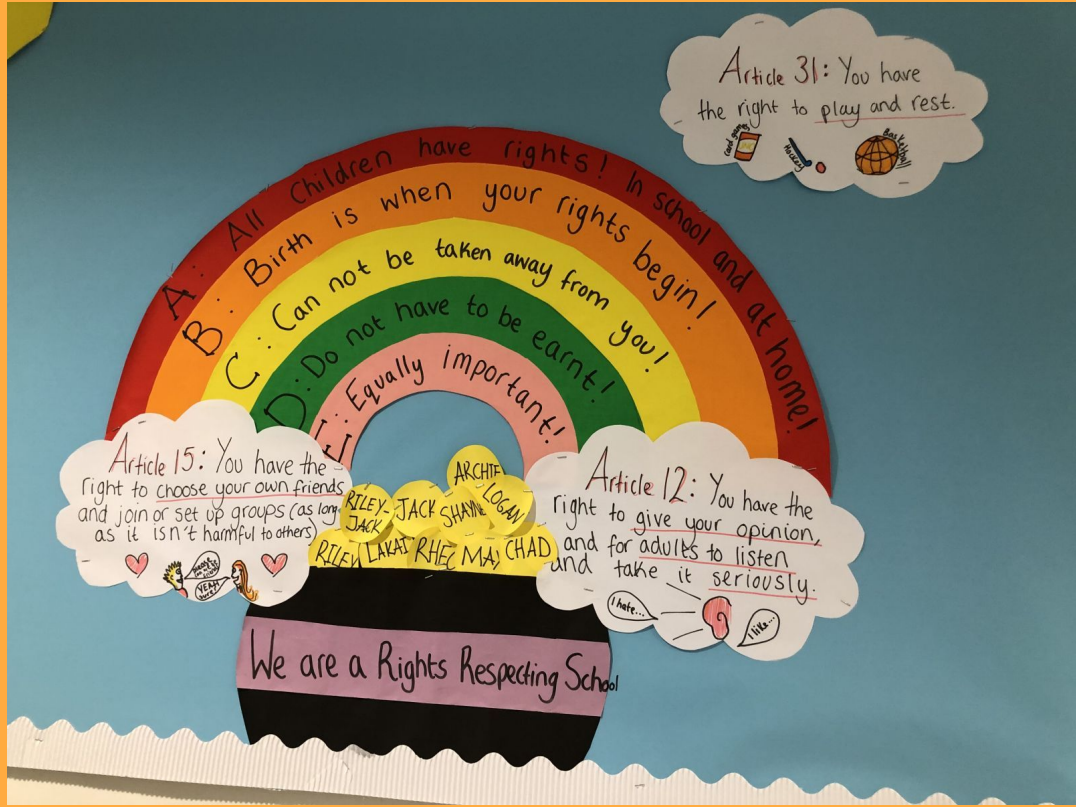 Article 31: You have
the right to play and rest.
card games
Hockey
Basketball
A: All Children have rights! In school and at home!
B: Birth is when your rights begin!
C: Can not be taken away from you!
D: Do not have to be earnt!
E: Equally important!
Article 15: You have the
right to choose your own friends
and join or set up groups (as long
as it isn't harmful to others)
YEAH
sure!
ARCHIE
RILEY-
JACK
JACK
SHAYNE
LOGAN
RILEY
CHAD
Article 12: You have the
right to give your opinion,
and for adults to listen
and take it seriously.
I hate...
I like...
We are a Rights Respecting School